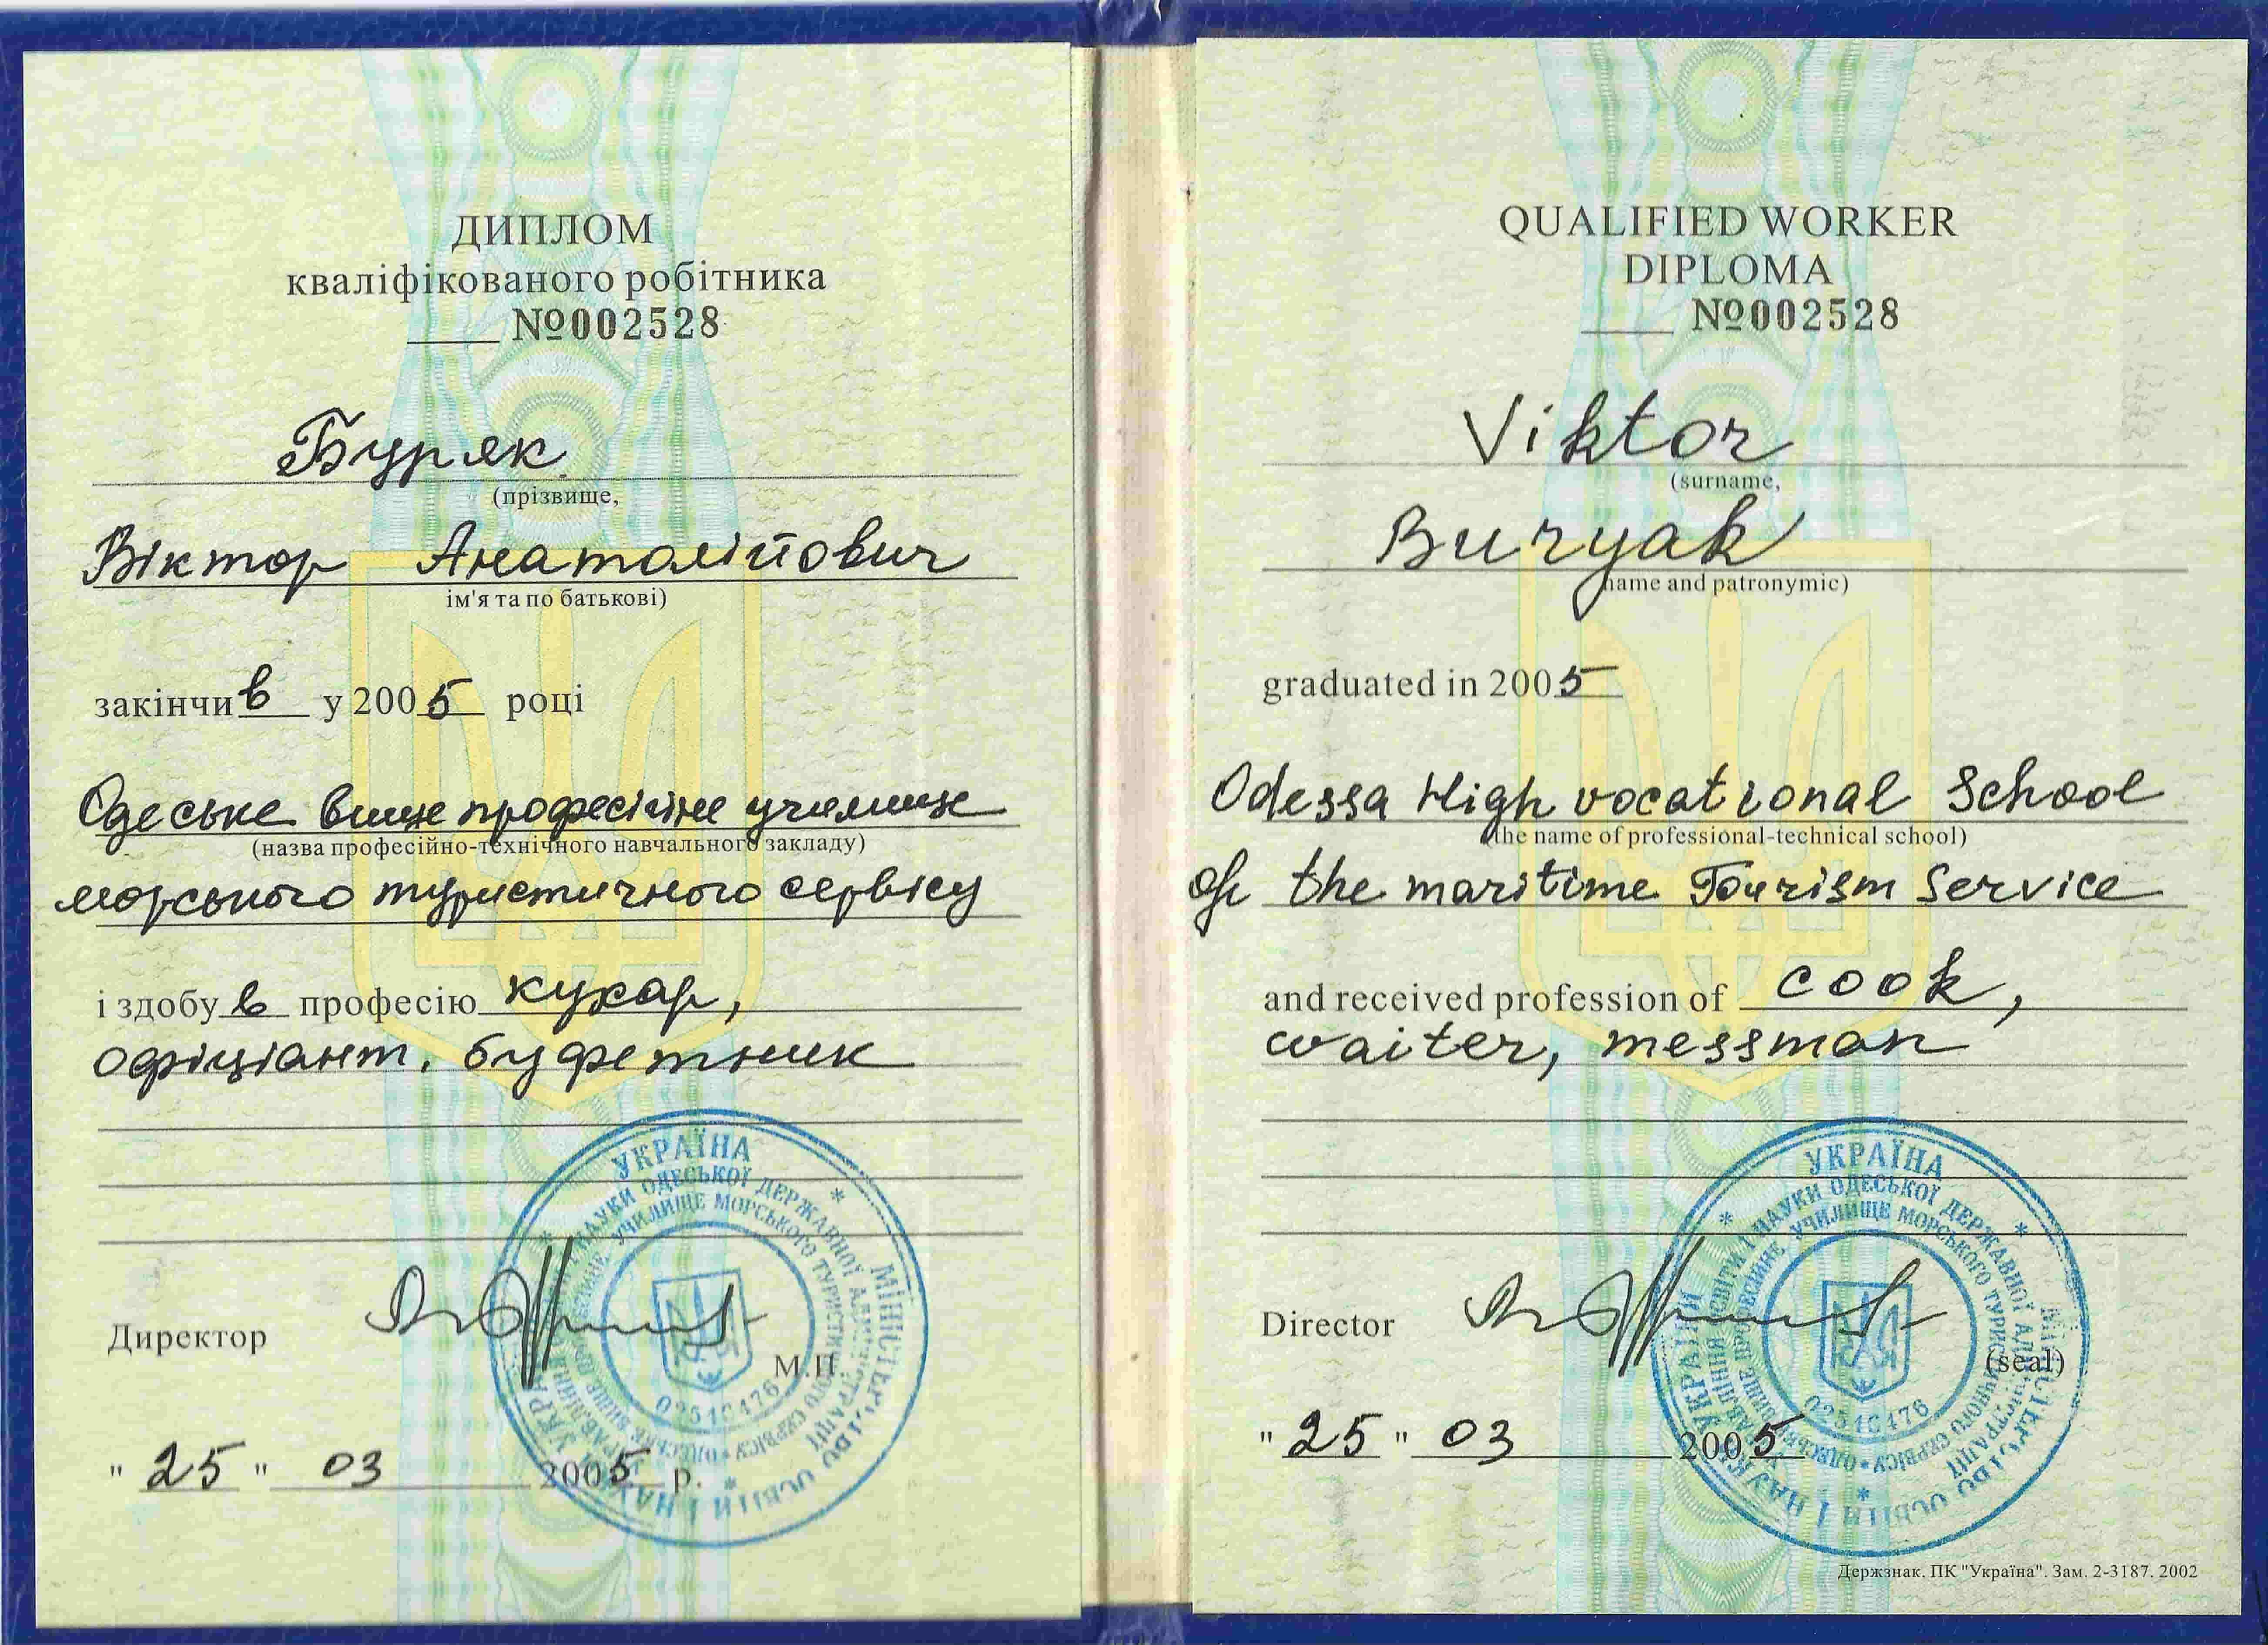 ДИПЛОМ
кваліфікованого робітника
____ №002528
Буряк
(прізвище,
Віктор Анатолійович
ім'я та по батькові)
закінчив у 2005 році
Одеське вище професійне училище
(назва професійно-технічного навчального закладу)
морського туристичного сервісу
і здобув професію кухар,
офіціант, буфетник
Директор
М.П.
" 25 " 03 2005 р.
УКРАЇНА
QUALIFIED WORKER
DIPLOMA
____ №002528
Viktor
(surname,
Buryak
name and patronymic)
graduated in 2005
Odessa High vocational School
(the name of professional-technical school)
of the maritime Tourism Service
and received profession of cook,
waiter, messman
Director
(seal)
" 25 " 03 2005
УКРАЇНА
НАУКИ ОДЕСЬКОЇ ДЕРЖАВНОЇ
УЧИЛИЩЕ МОРСЬКОГО ТУРИСТИЧНОГО СЕРВІСУ
Держзнак. ПК "Україна". Зам. 2-3187. 2002